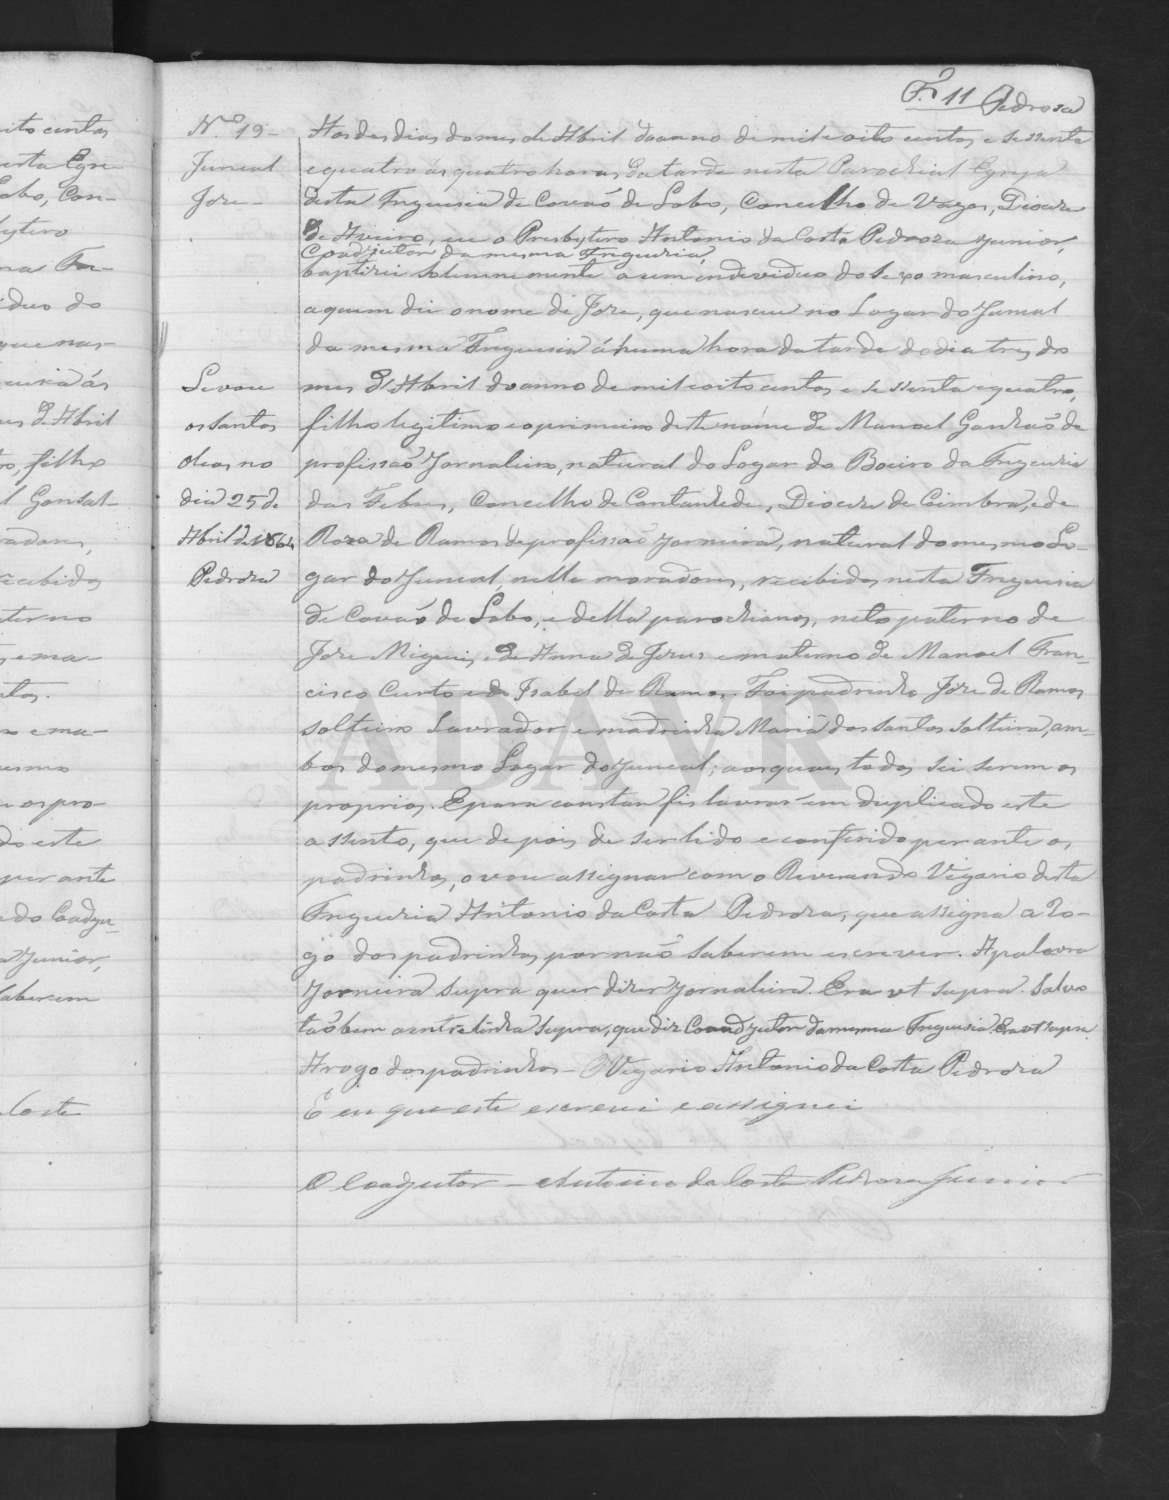 F. 11 Pedroza
N.º 19-
Juncal
Joze-
Levou
os santos
oleos no
dia 25 de
Abril de 1864
Pedroza
Aos des dias do mes de Abril do anno de mil e oito centos e sessenta
e quatro ás quatro horas da tarde nesta Parochial Egreja
desta Freguesia de Covaõ de Lobo, Concelho de Vagos, Diocese
de Aveiro, eu o Presbytero Antonio da Costa Pedroza Junior,
Coadjutor da mesma Freguezia,
baptizei solemnemente a um individuo do sexo masculino,
a quem dei o nome de Joze, que nasceu no Lugar do Juncal
da mesma Freguesia á huma hora da tarde do dia tres do
mes d'Abril do anno de mil e oito centos e sessenta e quatro,
filho legitimo e o primeiro deste nome de Manoel
profissaõ Jornaleiro, natural do Logar do da Freguesia
das Febres, Concelho de Cantanhede, Diocese de Coimbra, e de
Roza de Ramos de profissaõ Jorneira, natural do mesmo Lo-
gar do Juncal, nelle moradores, recebidos nesta Freguesia
de Covaõ de Lobo, e della parochianos, neto paterno de
Joze Migueis, e de Anna de Jezus e materno de Manoel Fran-
cisco Curto e de Isabel de Ramos. Foi padrinho Joze de Ramos
solteiro Lavrador, e madrinha Maria dos Santos solteira, am-
bos do mesmo Logar do Juncal, aos quaes todos sei serem os
proprios. E para constar fis lavrar em duplicado este
assento, que depois de ser lido e conferido perante os
padrinhos, o vou assignar com o Reverendo Vigario desta
Freguezia Antonio da Costa Pedroza, que assigna a ro-
go dos padrinhos por naõ saberem escrever. A palavra
Jorneira supra quer dizer Jornaleira. Era ut supra. Salvo
taõbem a entrelinha supra, que diz Coadjutor da mesma Freguesia. Era ut supra.
A rogo dos padrinhos - O Vigario Antonio da Costa Pedroza
E eu que este escrevi e assignei
O Coadjutor - Antonio da Costa Pedroza Junior
ADAVR